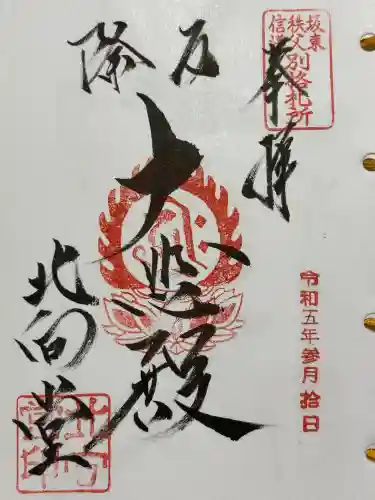 坂東
秩父
信濃
別格札所
奉拝
厄除
大悲殿
北向堂
令和五年参月拾日